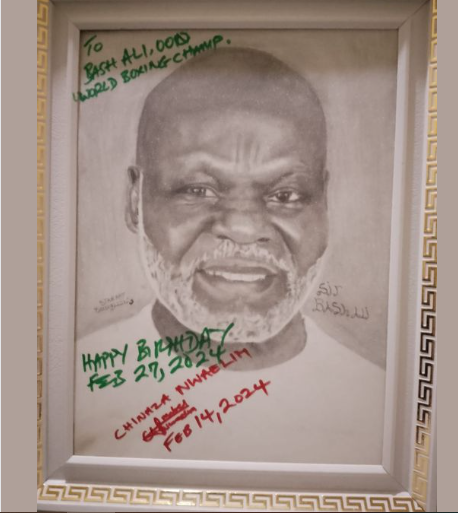 TO
BASH ALI, OON
WORLD BOXING CHAMP.
HAPPY BIRTHDAY
FEB 27, 2024
CHINAZA NWAELIH
FEB 14, 2024